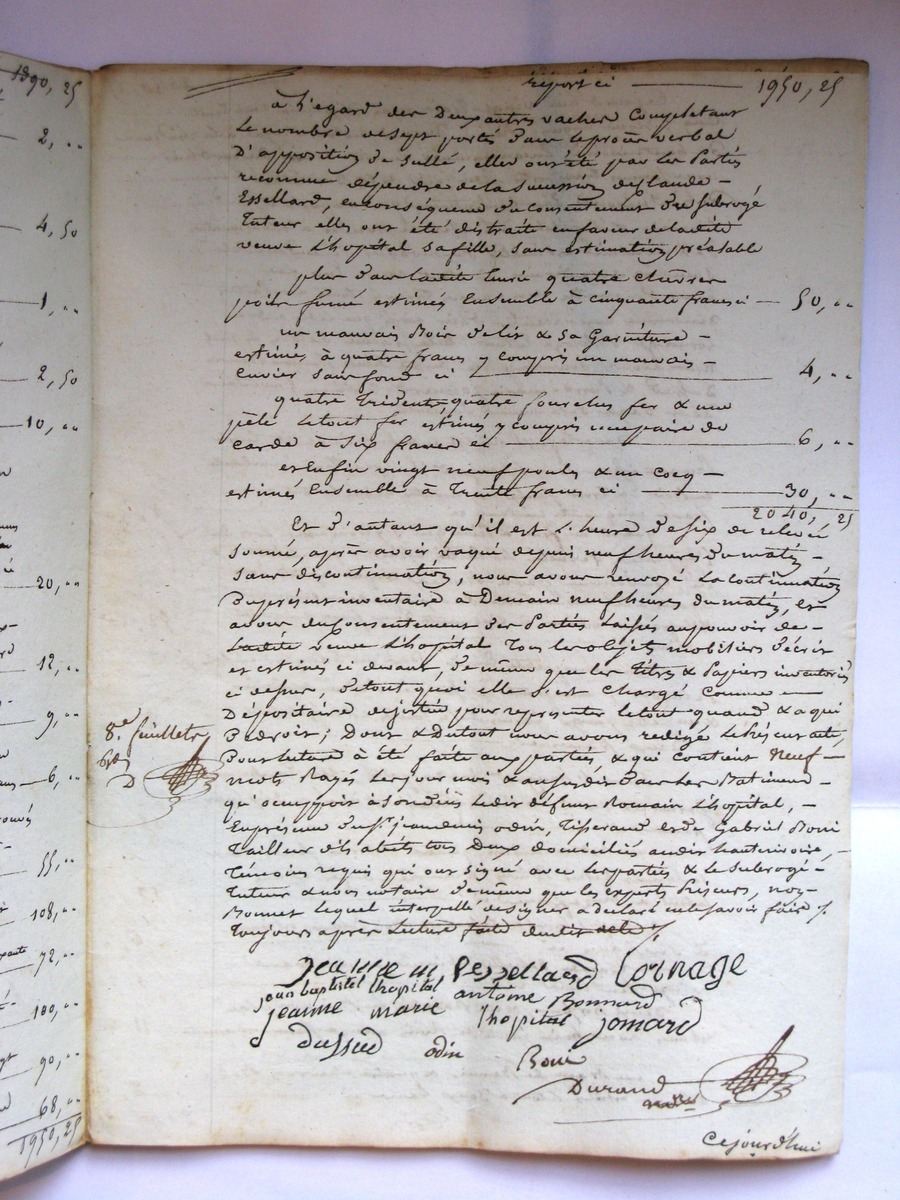 1890, 25
2, ..
4, 50
1, ..
2, 50
10, ..
20, ..
12, ..
9, ..
6, ..
55, ..
108, ..
72, ..
100, ..
90, ..
68, ..
1950, 25
report ci 1950, 25
à l'egard des Deux autres vaches Completant
Le nombre de sept portés dans le procès verbal
D'apposition de scellé, elles ont été par les Parties
reconnue dépendre de la sucession de Claude
Essellard, en conséquence du Consentement du subrogé
Tuteur elles ont été distrait en faveur de ladite
veuve L'hopital sa fille, sans estimation préalable
plus dans ladite Ecurie quatre
poile fumé estimés Ensemble à cinquante francs ci 50, ..
un mauvais Bois de lit & sa Garniture
estimés à quatre francs y compris un mauvais
Cuvier sans fond ci 4, ..
quatre Tridents, quatre fourches fer & une
pèle le tout fer estimés y compris une paire de
carde à Six francs ci 6, ..
et Enfin vingt neuf poules & un Cocq
estimés Ensemble à Trente francs ci 30, ..
2040, 25
Et d'autant qu'il est L'heure de six de relevée
sonné, après avoir vaqué depuis neuf heures du matin
sans discontinuation, nous avons renvoyé La continuation
Du présent inventaire à Demain neuf heures du matin, et
avons du Consentement des Parties Laissés au pouvoir de
Ladite veuve L'hopital Tous les objets mobiliers décrit
et estimés ci devant, de même que les Titres & Papiers inventoriés
ci dessus, de tout quoi elle s'est Chargé Comme
Dépositaire de justice pour representer le tout quand & a qui
De droit; Dont & du tout nous avons redigé Le Présent acte,
Dont lecture à été faite aux parties, & qui contient Neuf
mots Rayés Les jour mois & an susdit dans Les Batiments
qu'occuppoit à son décès Ledit défunt Romain L'hopital,
En présence de Sr. jean denis odin, Tisserand et de Gabriel Boui
Tailleur d'habits tous Deux domiciliés audit hauterivoire,
Témoins requis qui ont signé avec les parties & Le subrogé
Tuteur & nous notaire de même que les experts Priseurs, non
Bonnet Lequel interpellé de signer a déclaré ne le savoir faire
Toujours après Lecture faite
8.e feuillets
D
jeanne m Pessellard Cornage
jean baptiste lhopital antoine Bonnard
jeanne marie lhopital jomard
Dussud odin Boui
Durand
Cejourd'hui